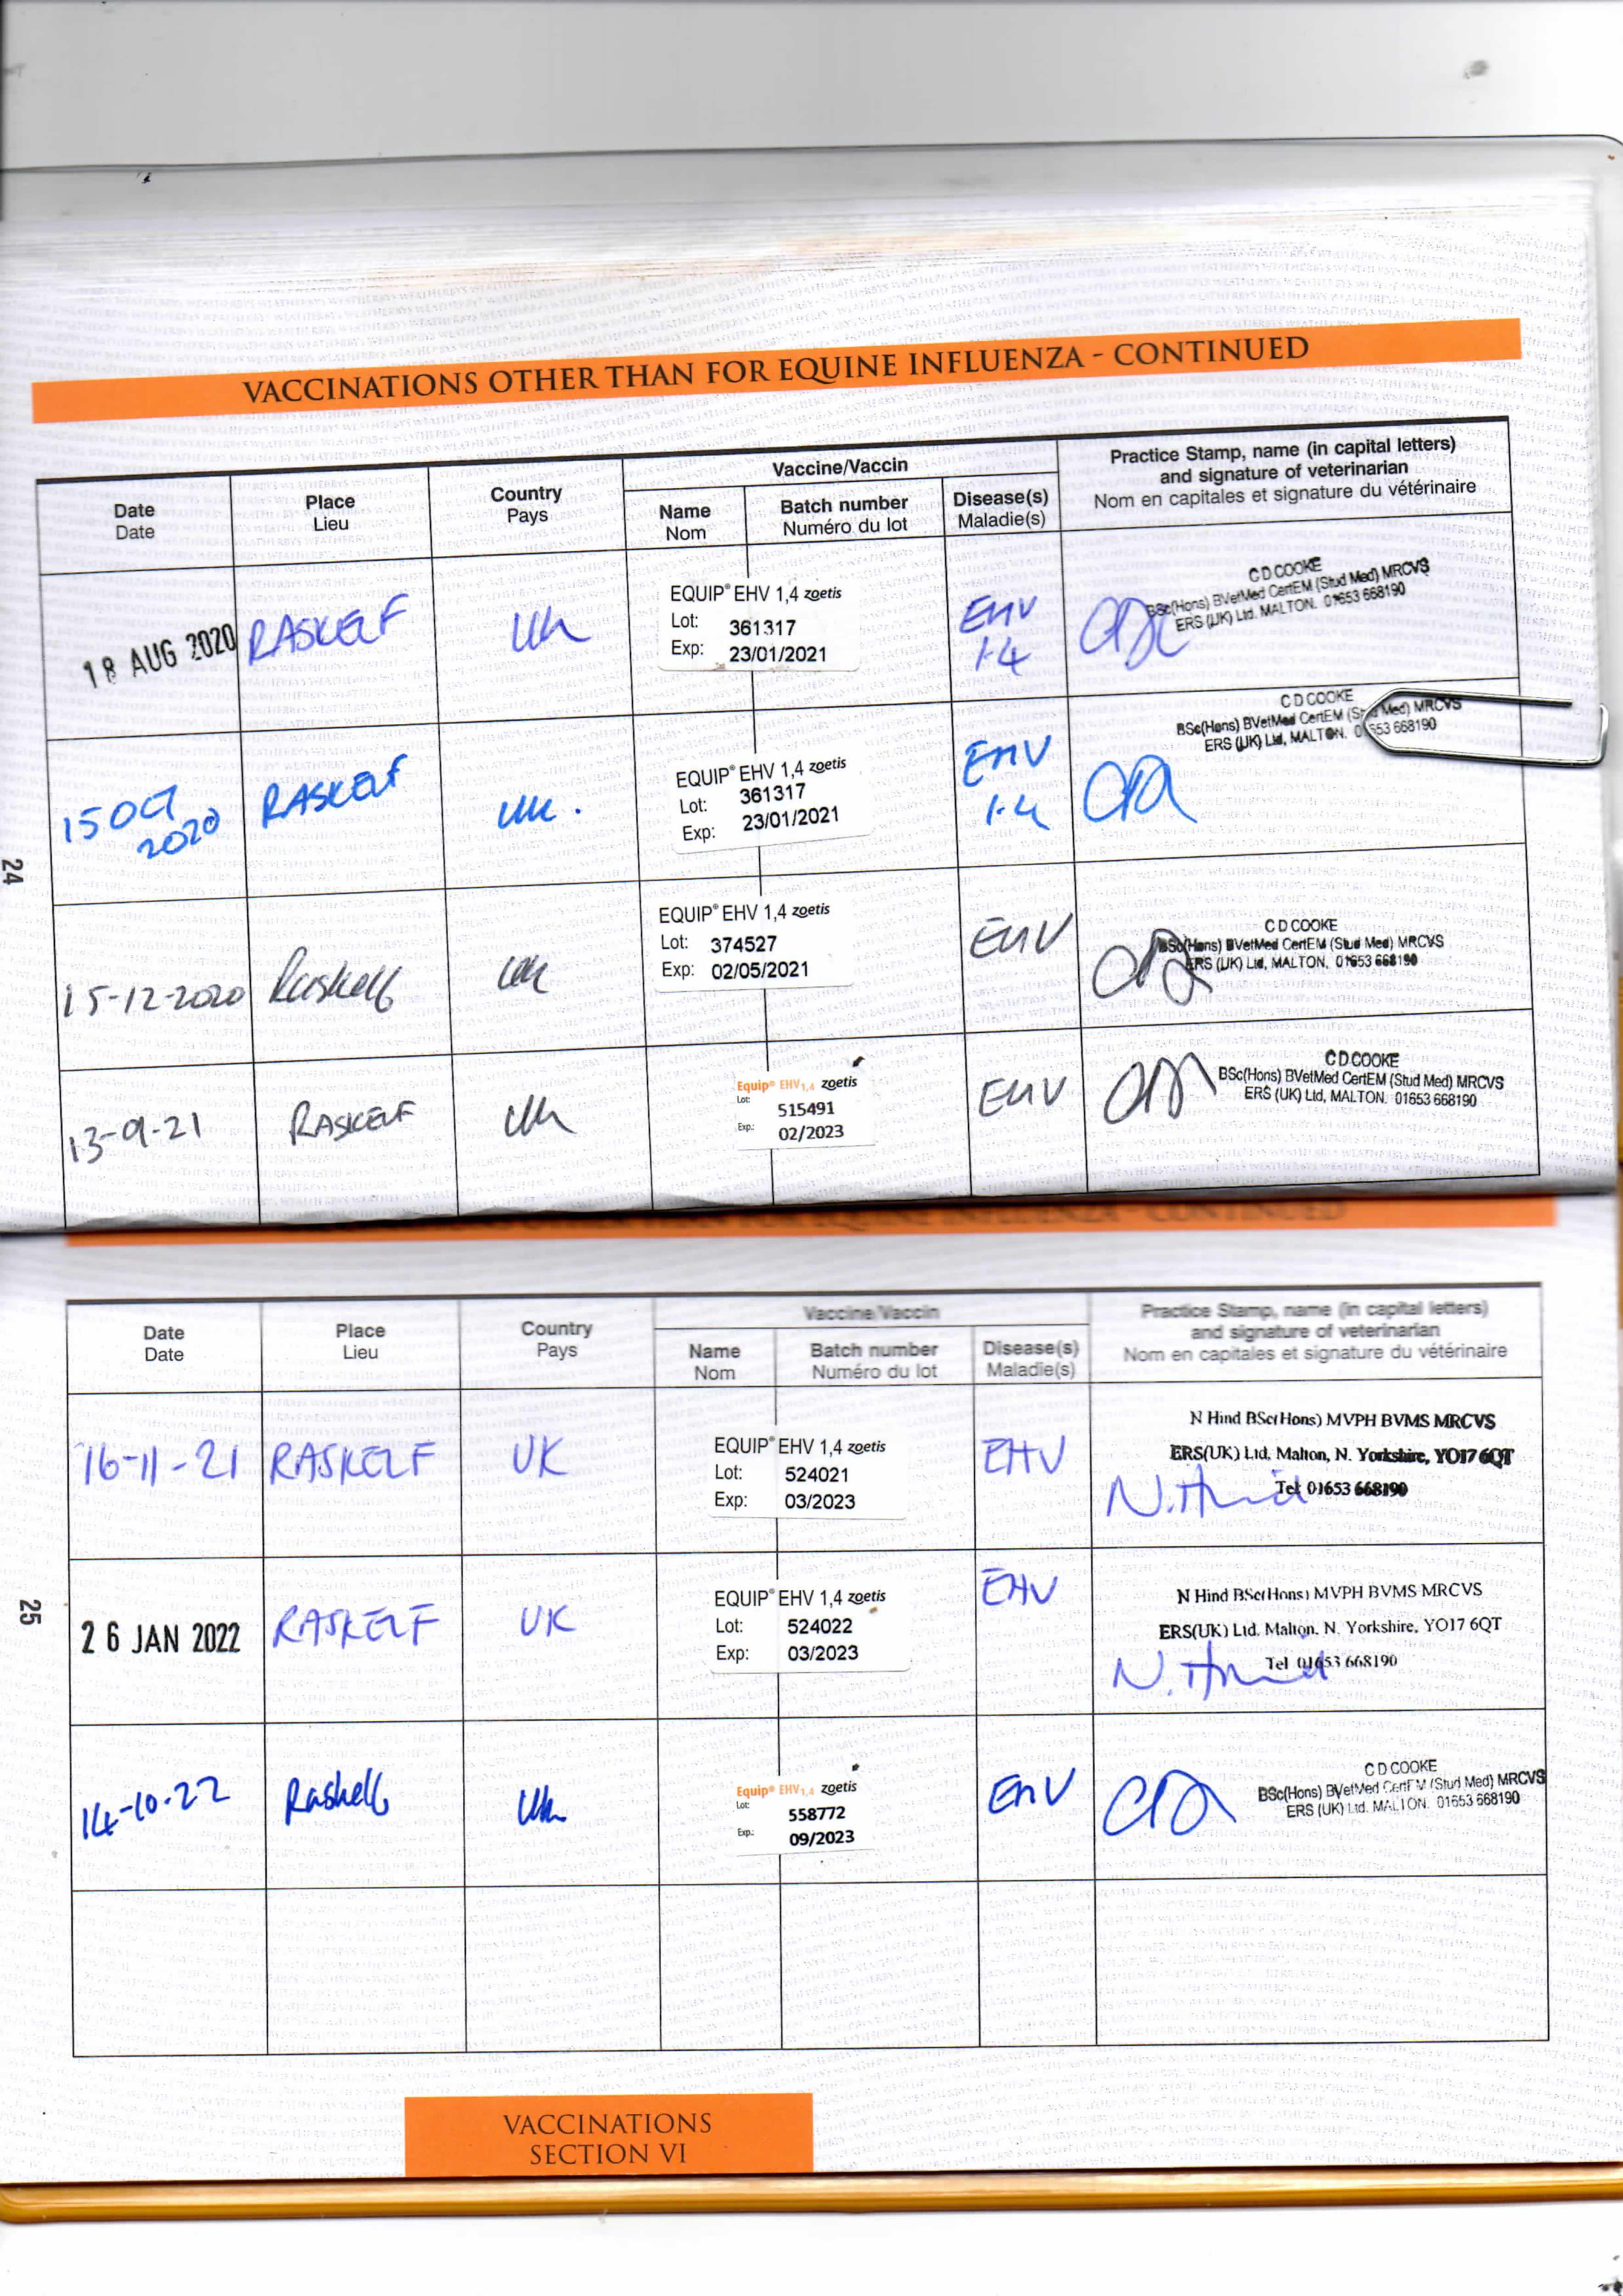 VACCINATIONS OTHER THAN FOR EQUINE INFLUENZA - CONTINUED
Vaccine/Vaccin
Practice Stamp, name (in capital letters)
and signature of veterinarian
Nom en capitales et signature du vétérinaire
Date
Date
Place
Lieu
Country
Pays
Name
Nom
Batch number
Numéro du lot
Disease(s)
Maladie(s)
18 AUG 2020
RASKELF
UK
EQUIP® EHV 1,4 zoetis
Lot: 361317
Exp: 23/01/2021
EHV
1.4
C D COOKE
BSc(Hons) BVetMed CertEM (Stud Med) MRCVS
ERS (UK) Ltd. MALTON. 01653 668190
15 OCT
2020
RASKELF
UK.
EQUIP® EHV 1,4 zoetis
Lot: 361317
Exp: 23/01/2021
EHV
1.4
C D COOKE
BSc(Hons) BVetMed CertEM (Stud Med) MRCVS
ERS (UK) Ltd, MALTON. 01653 668190
24
15-12-2020
Raskelf
UK
EQUIP® EHV 1,4 zoetis
Lot: 374527
Exp: 02/05/2021
EHV
C D COOKE
BSc(Hons) BVetMed CertEM (Stud Med) MRCVS
ERS (UK) Ltd, MALTON, 01653 668190
13-9-21
RASKELF
UK
Equip® EHV 1,4 zoetis
Lot: 515491
Exp.: 02/2023
EHV
C D COOKE
BSc(Hons) BVetMed CertEM (Stud Med) MRCVS
ERS (UK) Ltd, MALTON. 01653 668190
CONTINUED
Vaccine/Vaccin
Practice Stamp, name (in capital letters)
and signature of veterinarian
Nom en capitales et signature du vétérinaire
Date
Date
Place
Lieu
Country
Pays
Name
Nom
Batch number
Numéro du lot
Disease(s)
Maladie(s)
16-11-21
RASKELF
UK
EQUIP® EHV 1,4 zoetis
Lot: 524021
Exp: 03/2023
EHV
N Hind BSc(Hons) MVPH BVMS MRCVS
ERS(UK) Ltd, Malton, N. Yorkshire, YO17 6QT
Tel: 01653 668190
N. Hind
25
26 JAN 2022
RASKELF
UK
EQUIP® EHV 1,4 zoetis
Lot: 524022
Exp: 03/2023
EHV
N Hind BSc(Hons) MVPH BVMS MRCVS
ERS(UK) Ltd. Malton. N. Yorkshire, YO17 6QT
Tel 01653 668190
N. Hind
14-10-22
Raskelf
UK
Equip® EHV 1,4 zoetis
Lot: 558772
Exp.: 09/2023
EHV
C D COOKE
BSc(Hons) BVetMed CertEM (Stud Med) MRCVS
ERS (UK) Ltd. MALTON. 01653 668190
VACCINATIONS
SECTION VI